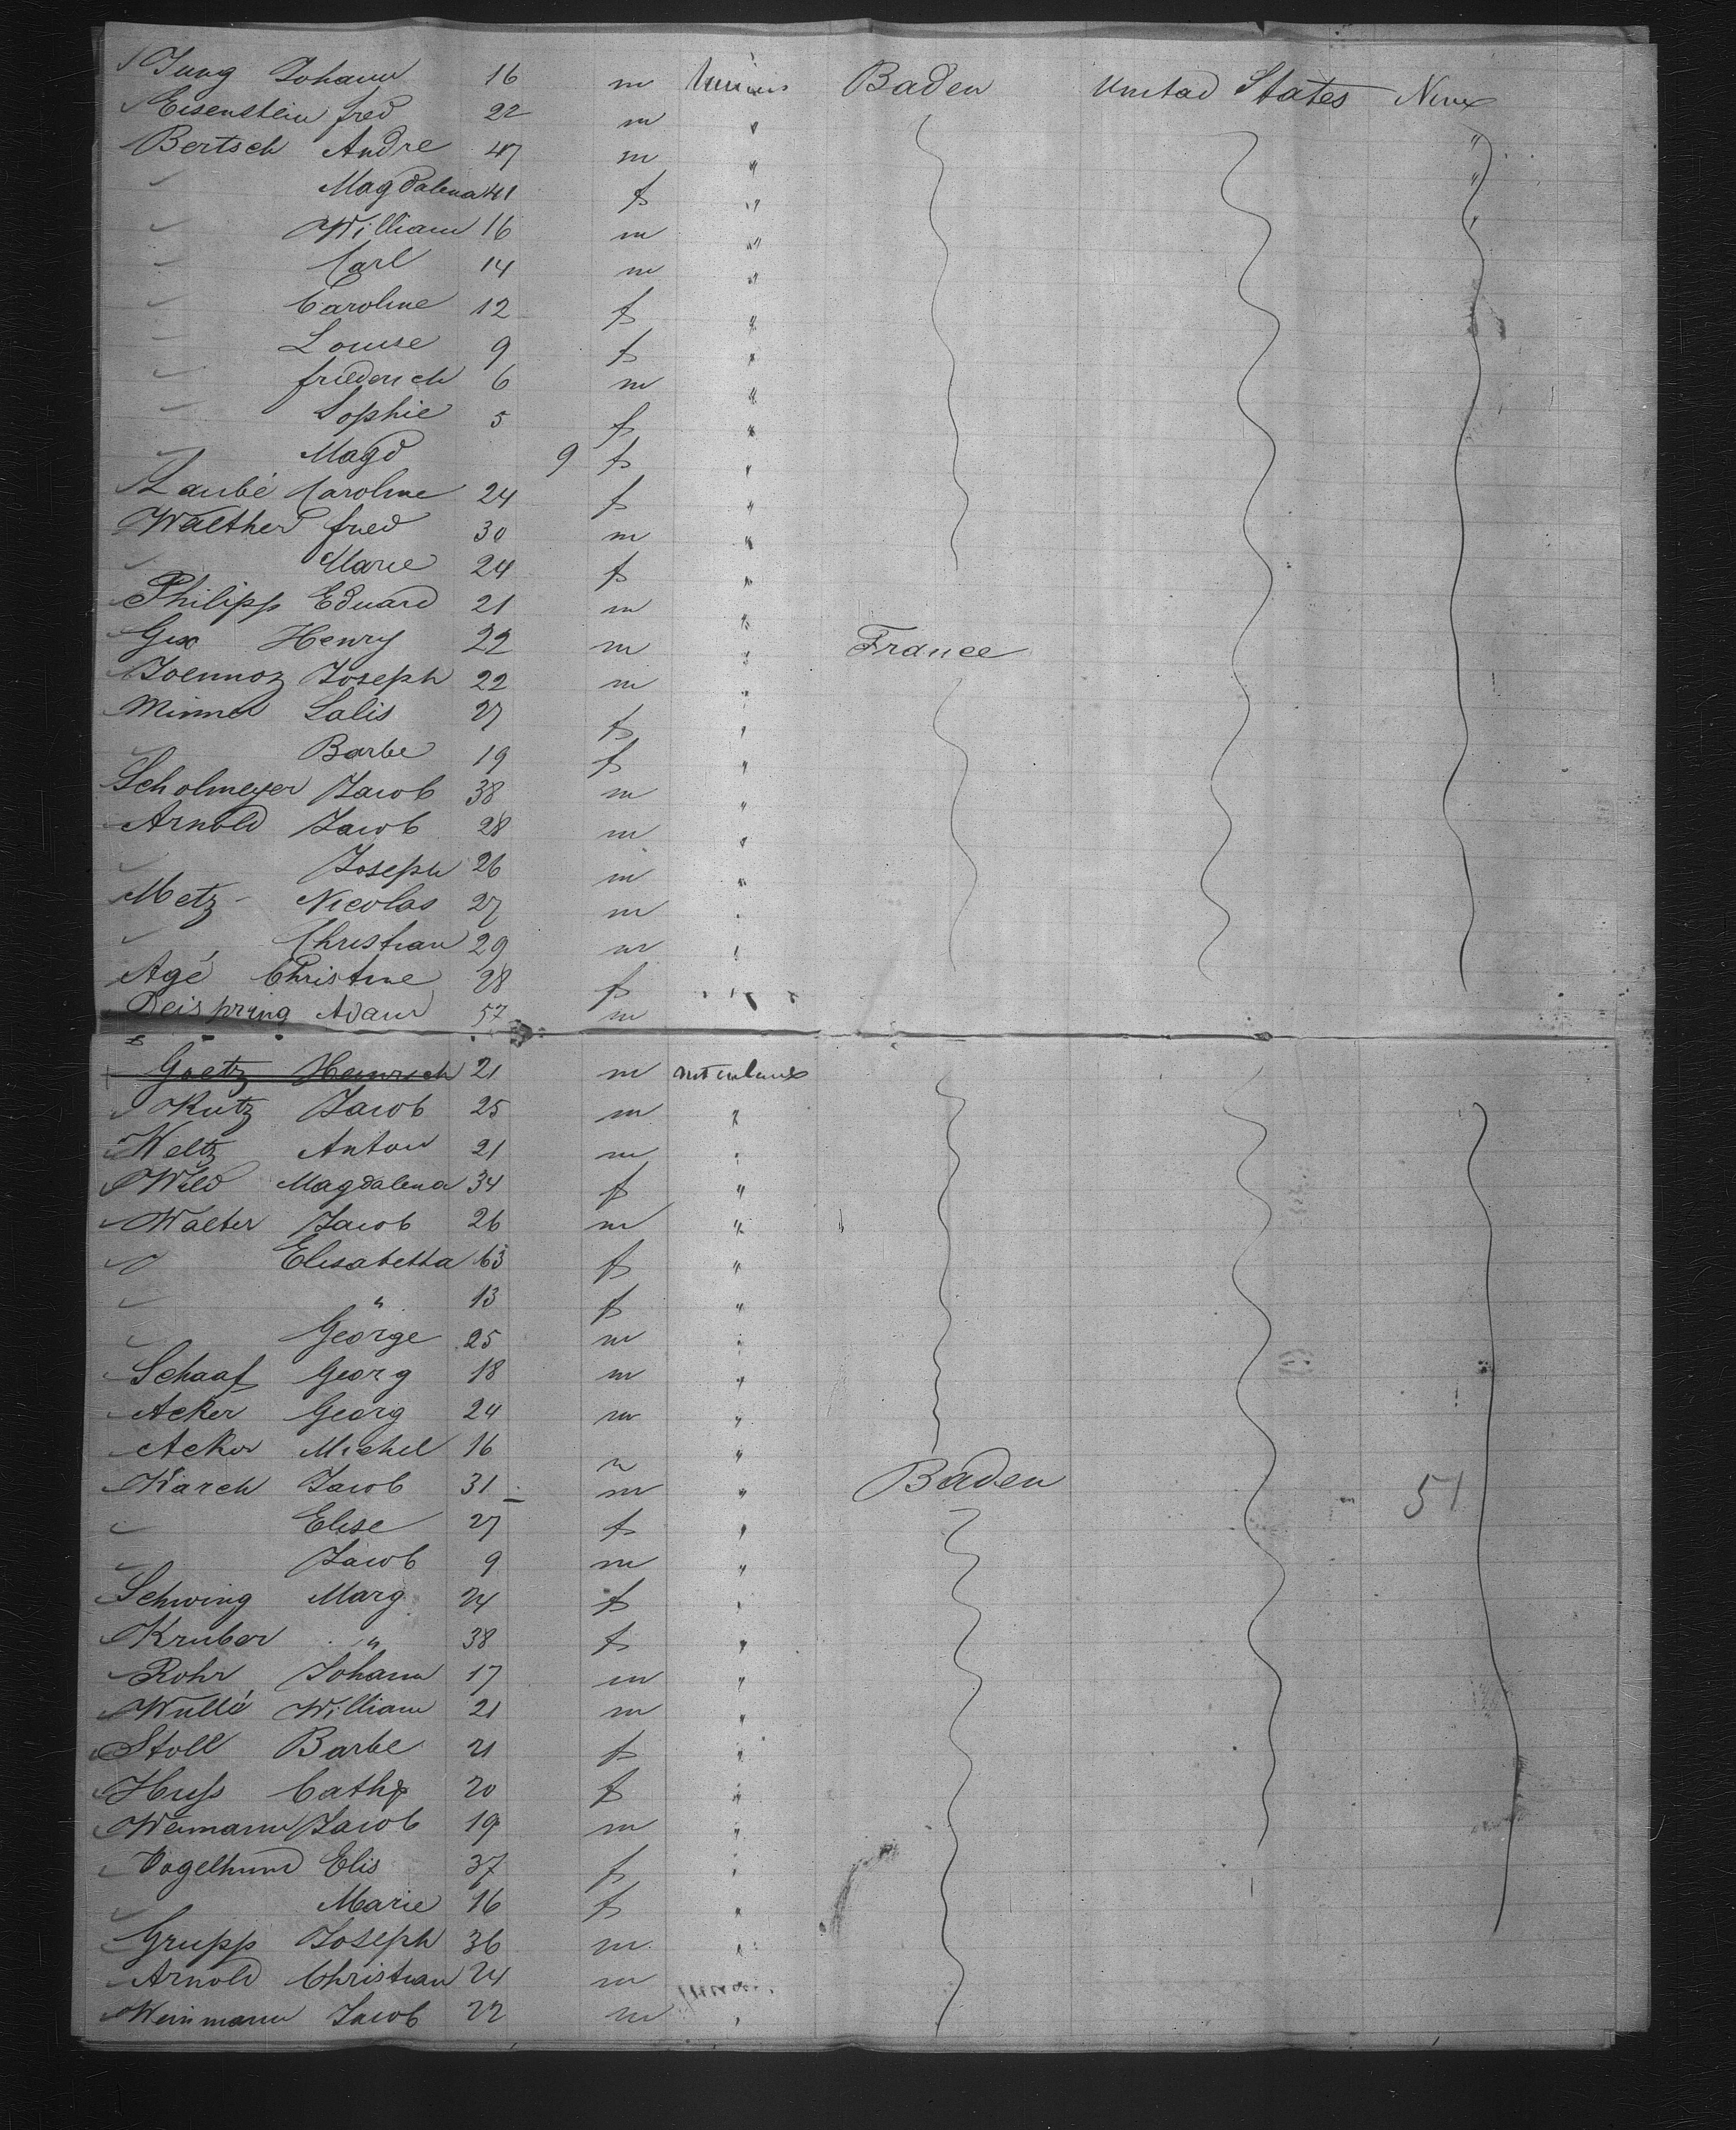 Jung Johann 16 m Baden United States
Eisenstein fred 22 m "
Bertsch Andre 47 m " "
Magdalena 41 f " "
William 16 m "
Carl 14 m "
Caroline 12 f "
Louise 9 f "
friederich 6 m "
Sophie 5 f "
Magd 9 f "
Laubé Caroline 24 f "
Walther fred 30 m "
Marie 24 f "
Philipp Eduard 21 m "
Henry 22 m " France
Joseph 22 m "
Salis 27 f "
Barbe 19 f "
Scholmeyer Jacob 38 m "
Arnold Jacob 28 m "
Joseph 26 m "
Metz Nicolas 27 m "
Christian 29 m "
Agé Christine 28 f "
Adam 57 m
Goetz Heinrich 21 m
Kutz Jacob 25 m "
Weltz Anton 21 m "
Wild Magdalena 34 f "
Walter Jacob 26 m "
Elisabetha 63 f "
" 13 f "
George 25 m "
Schaaf Georg 18 m "
Acker Georg 24 m "
Acker Michel 16 m "
Karch Jacob 31 m " Baden 51
Elise 27 f "
Jacob 9 m "
Schwing Marg 24 f "
Kruber " 38 f "
Rohr Johann 17 m "
Wullé William 21 m "
Stoll Barbe 21 f "
Huss Cath 20 f "
Weimann Jacob 19 m "
Vogelhund Elis 37 f "
Marie 16 f "
Grupp Joseph 36 m "
Arnold Christian 24 m
Weinmann Jacob 22 m "